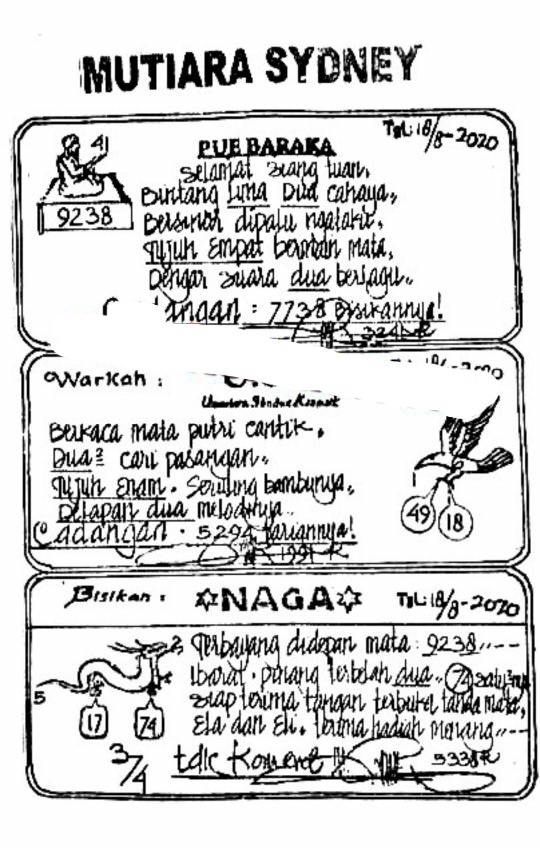 MUTIARA SYDNEY
41
9238
PUE BARAKA
Tgl: 18/8-2020
Selamat siang tuan,
Bintang Lima Dua cahaya,
Bersinar dipalu
Tujuh Empat bermain mata,
Dengar suara dua berlagu..
: 7738 Bisikannya!
Warkah :
Berkaca mata putri cantik,
Dua² cari pasangan..
Tujuh Enam. Seruling bambunya,
Delapan dua melodinya..
Cadangan . 5294 tariannya!
1991-R
49
18
Bisikan :
NAGA
Tgl: 18/8-2020
5
2
17
74
3/4
Terbayang didepan mata : 9238,,---
Ibarat. pinang terbelah dua.. 74
siap terima tangan terbuka tanda mata,
Ela dan Eli. terima hadiah menang..---
tdk Komeret
5338-R